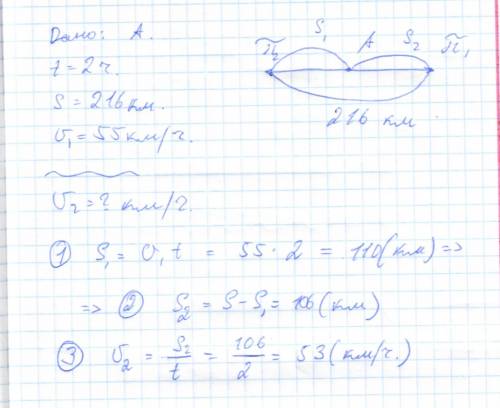 Дано: А.
t = 2 ч.
S = 216 км.
υ₁ = 55 км/ч.
υ₂ = ? км/ч.
S₁ А S₂
П₂ П₁
216 км
① S₁ = υ₁t = 55 · 2 = 110 (км) =>
=> ② S₂ = S - S₁ = 106 (км)
③ υ₂ = S₂/t = 106/2 = 53 (км/ч.)